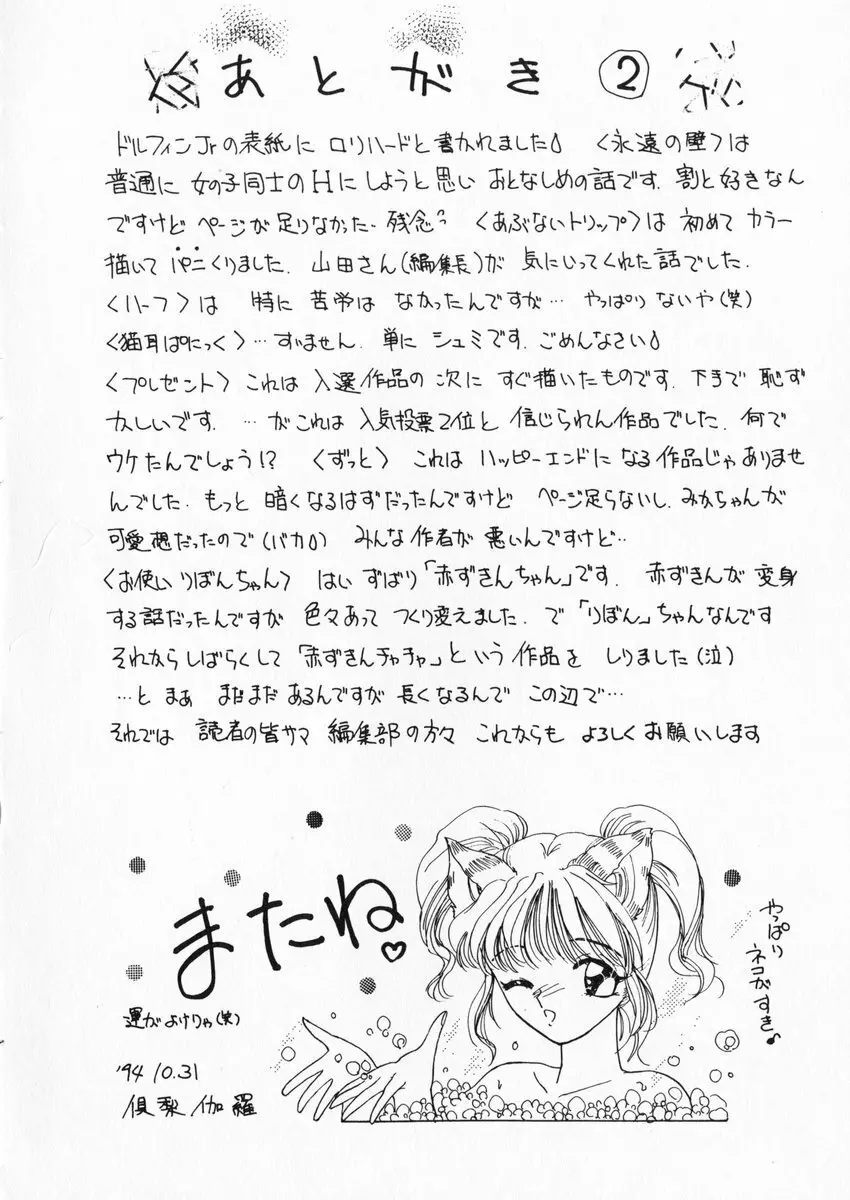 あとがき ②
ドルフィンJrの表紙に ロリハードと書かれました♪ 〈永遠の壁〉は
普通に 女の子同士のHにしようと思い おとなしめの話です. 割と好きなん
ですけど ページが足りなかった‥ 残念? 〈あぶないトリップ〉は 初めて カラー
描いて パニくりました. 山田さん(編集長)が 気にいってくれた話でした.
〈ハーフ〉は 特に 苦労は なかったんですが… やっぱり ないや(笑)
〈猫耳ぱにっく〉…すいません. 単に シュミです. ごめんなさい♪
〈プレゼント〉 これは 入選作品の 次に すぐ描いたものです. 下手で 恥ず
かしいです. …がこれは 人気投票2位と 信じられん作品でした. 何で
ウケたんでしょう!? 〈ずっと〉 これは ハッピーエンドに なる 作品じゃ ありませ
んでした. もっと 暗くなるはずだったんですけど ページ足らないし. みかちゃんが
可愛想だったので(バカ♪) みんな 作者が 悪いんですけど‥
〈お使いりぼんちゃん〉 はい ずばり「赤ずきんちゃん」です. 赤ずきんが 変身
する話だったんですが 色々あって つくり変えました. で「りぼん」ちゃんなんです
それからしばらくして「赤ずきんチャチャ」という 作品を しりました(泣)
…と まぁ まだまだ あるんですが 長くなるんで この辺で…
それでは 読者の皆サマ 編集部の方々 これからも よろしく お願いします
またね♡
運がよけりゃ(笑)
'94 10.31
倶梨伽羅
やっぱり
ネコがすき♪